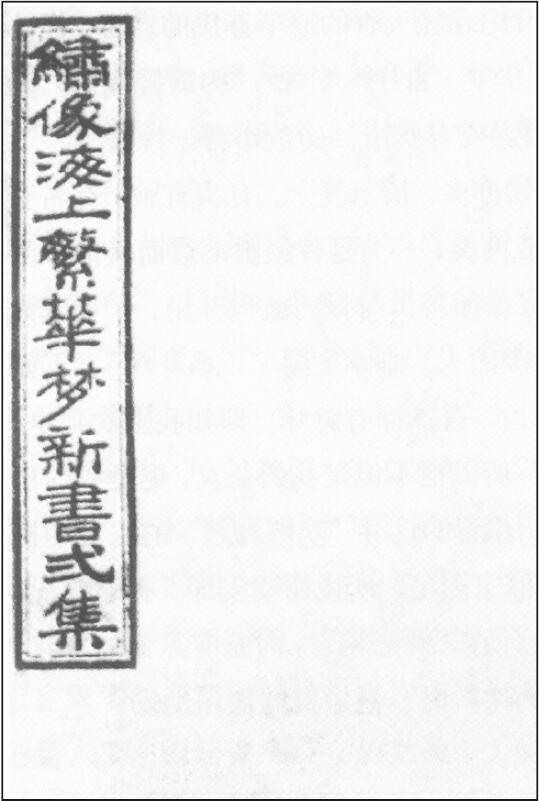 繡像海上繁華梦新書弍集